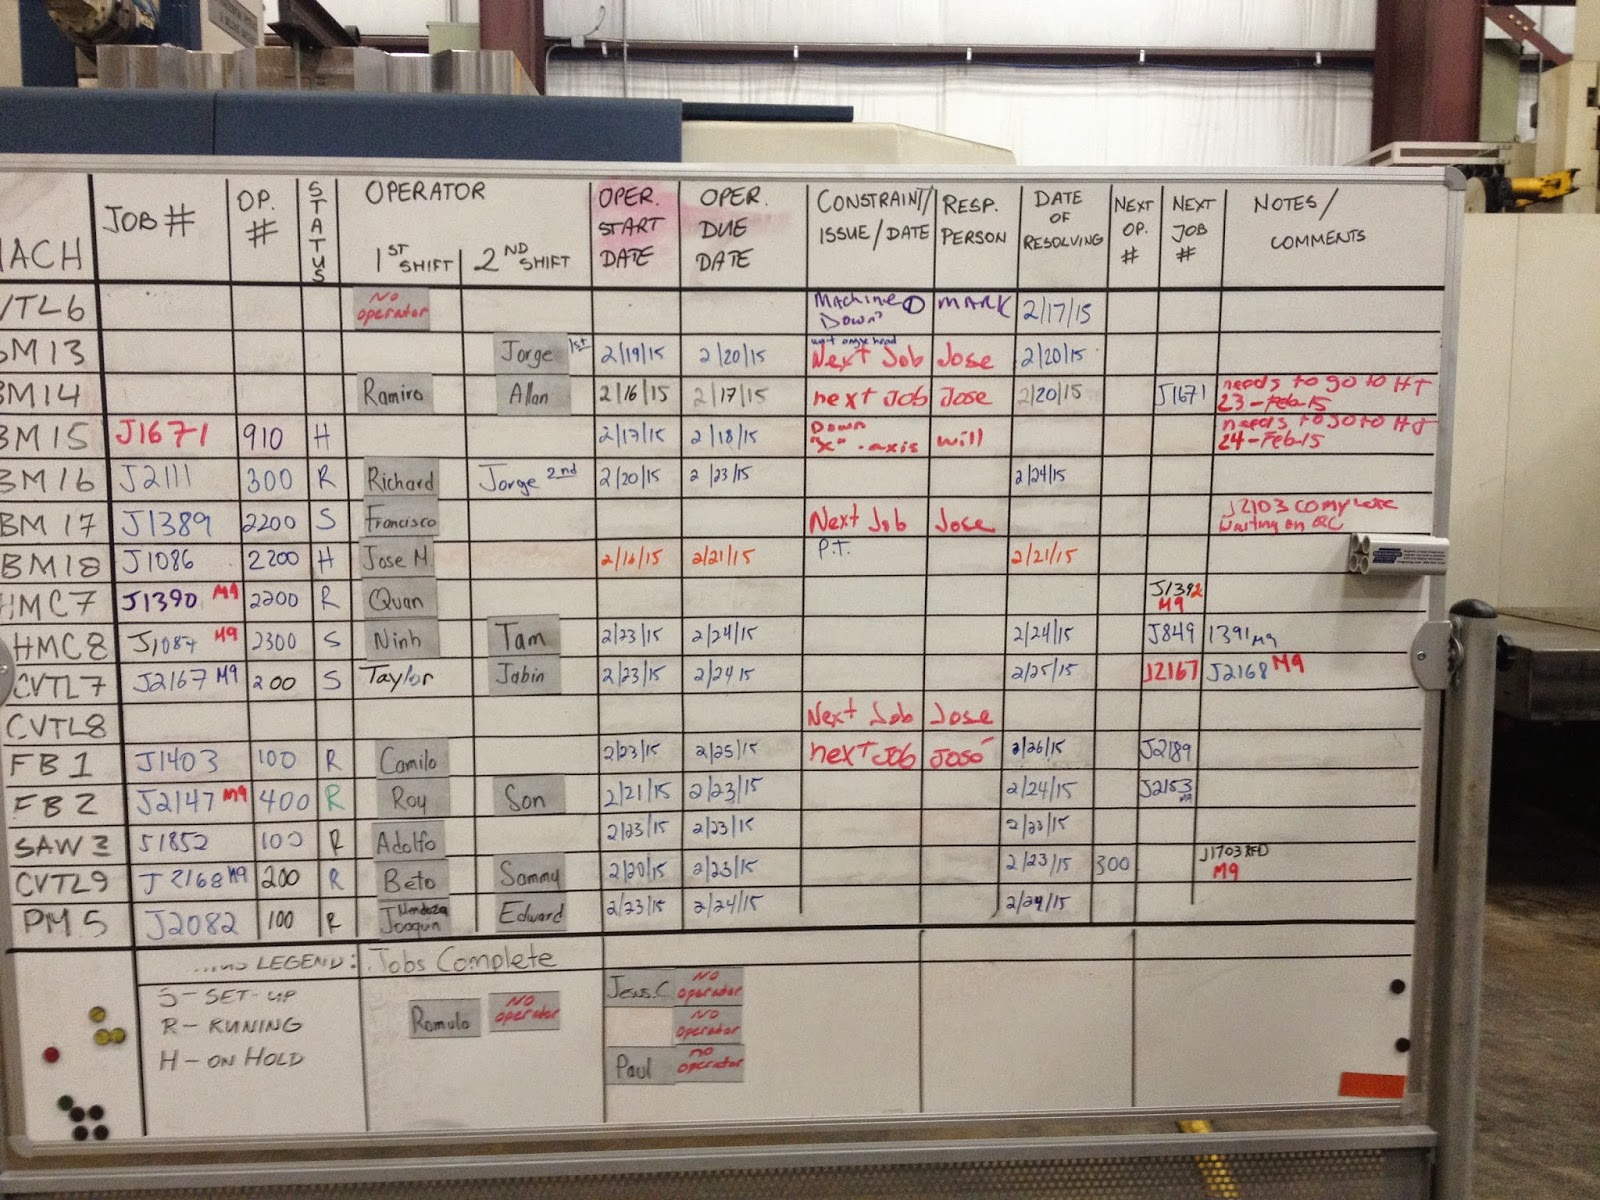 MACH JOB # OP. # STATUS OPERATOR 1ST SHIFT 2ND SHIFT OPER. START DATE OPER. DUE DATE CONSTRAINT/ ISSUE/DATE RESP. PERSON DATE OF RESOLVING NEXT OP. # NEXT JOB # NOTES/ COMMENTS
VTL6 NO operator Machine Down MARK 2/17/15
BM13 Jorge 1st 2/19/15 2/20/15 wait angle head Next Job Jose 2/20/15
BM14 Ramiro Allan 2/16/15 2/17/15 next Job Jose 2/20/15 J1671 needs to go to HT 23-Feb-15
BM15 J1671 910 H 2/17/15 2/18/15 DOWN "X"-axis will needs to go to HT 24-Feb-15
BM16 J2111 300 R Richard Jorge 2nd 2/20/15 2/23/15 2/24/15
BM17 J1389 2200 S Francisco Next Job Jose J2103 Waiting on QC
BM18 J1086 2200 H Jose M. 2/16/15 2/21/15 P.T. 2/21/15
HMC7 J1390 M9 2200 R Quan J1392 M9
HMC8 J1087 M9 2300 S Ninh Tam 2/23/15 2/24/15 2/24/15 J849 1391 M9
CVTL7 J2167 M9 200 S Taylor Jabin 2/23/15 2/24/15 2/25/15 J2167 J2168 M9
CVTL8 Next Job Jose
FB1 J1403 100 R Camilo 2/23/15 2/25/15 next Job José 2/26/15 J2189
FB2 J2147 M9 400 R Roy Son 2/21/15 2/23/15 2/24/15 J2153 M9
SAW3 J1852 100 R Adolfo 2/23/15 2/23/15 2/23/15
CVTL9 J2168 M9 200 R Beto Sammy 2/20/15 2/23/15 2/23/15 300 J1703 RFD M9
PM5 J2082 100 R Mendoza Joaquin Edward 2/23/15 2/24/15 2/24/15
LEGEND: Jobs Complete
S-SET-UP
R-RUNING
H-ON HOLD
Romulo NO operator
Jess.C NO operator
NO operator
Paul no operator